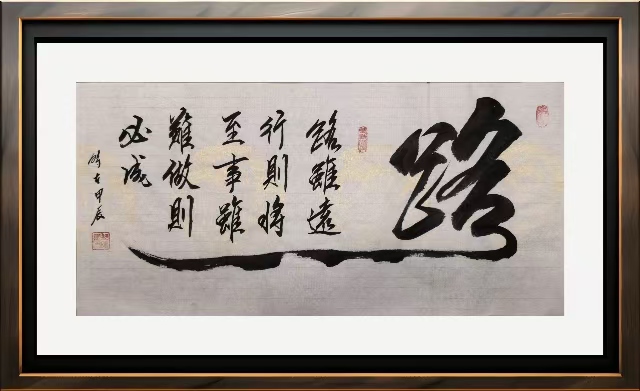 路
路雖遠
行則將
至事雖
難做則
必成
時在甲辰